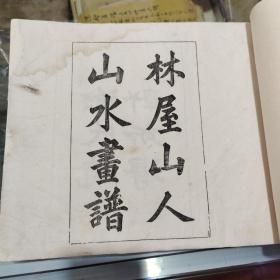 林屋山人
山水畫譜